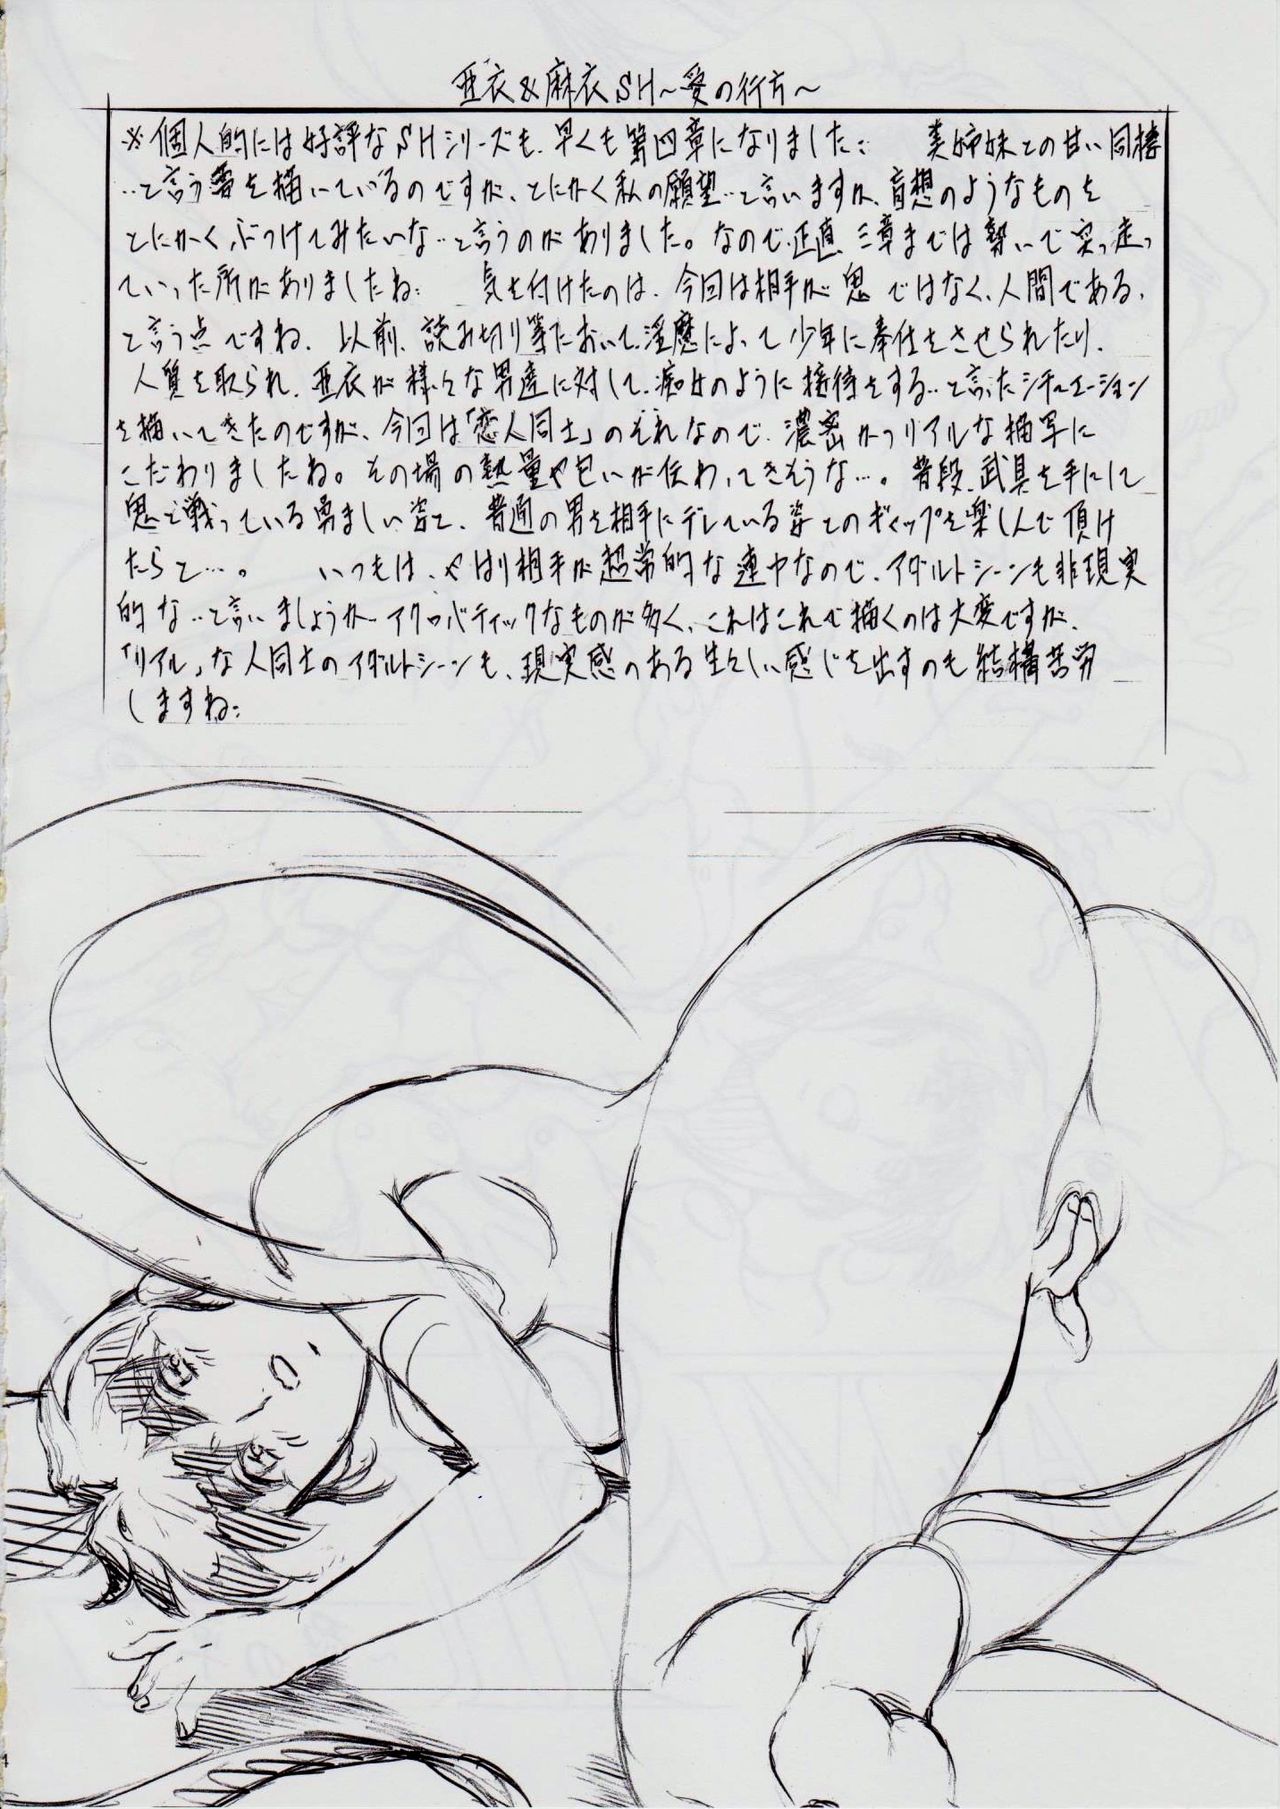 亜衣&麻衣SH～愛の行方～
※個人的には好評なSHシリーズも、早くも第四章になりました； 美姉妹との甘い同棲
‥と言う事を描いているのですが、とにかく私の願望‥と言いますか、盲想のようなものを
とにかくぶつけてみたいな‥と言うのがありました。なので、正直、三章までは勢いで突っ走っ
ていった所がありましたね； 気を付けたのは、今回は相手が鬼ではなく、人間である、
と言う点ですね。以前、読み切り等において、淫魔によって少年に奉仕をさせられたり、
人質を取られ、亜衣が様々な男達に対して、痴女のように接待をする‥と言ったシチュエーション
を描いてきたのですが、今回は「恋人同士」のそれなので、濃密かつリアルな描写に
こだわりましたね。その場の熱量や匂いが伝わってきそうな…。普段、武具を手にして
鬼と戦っている勇ましい姿と、普通の男を相手にデレている姿とのギャップを楽しんで頂け
たらと…。 いつもは、やはり相手が超常的な連中なので、アダルトシーンも非現実
的な‥と言いましょうか、アクロバティックなものが多く、これはこれで描くのは大変ですが、
「リアル」な人同士のアダルトシーンも、現実感のある生々しい感じを出すのも結構苦労
しますね；
4